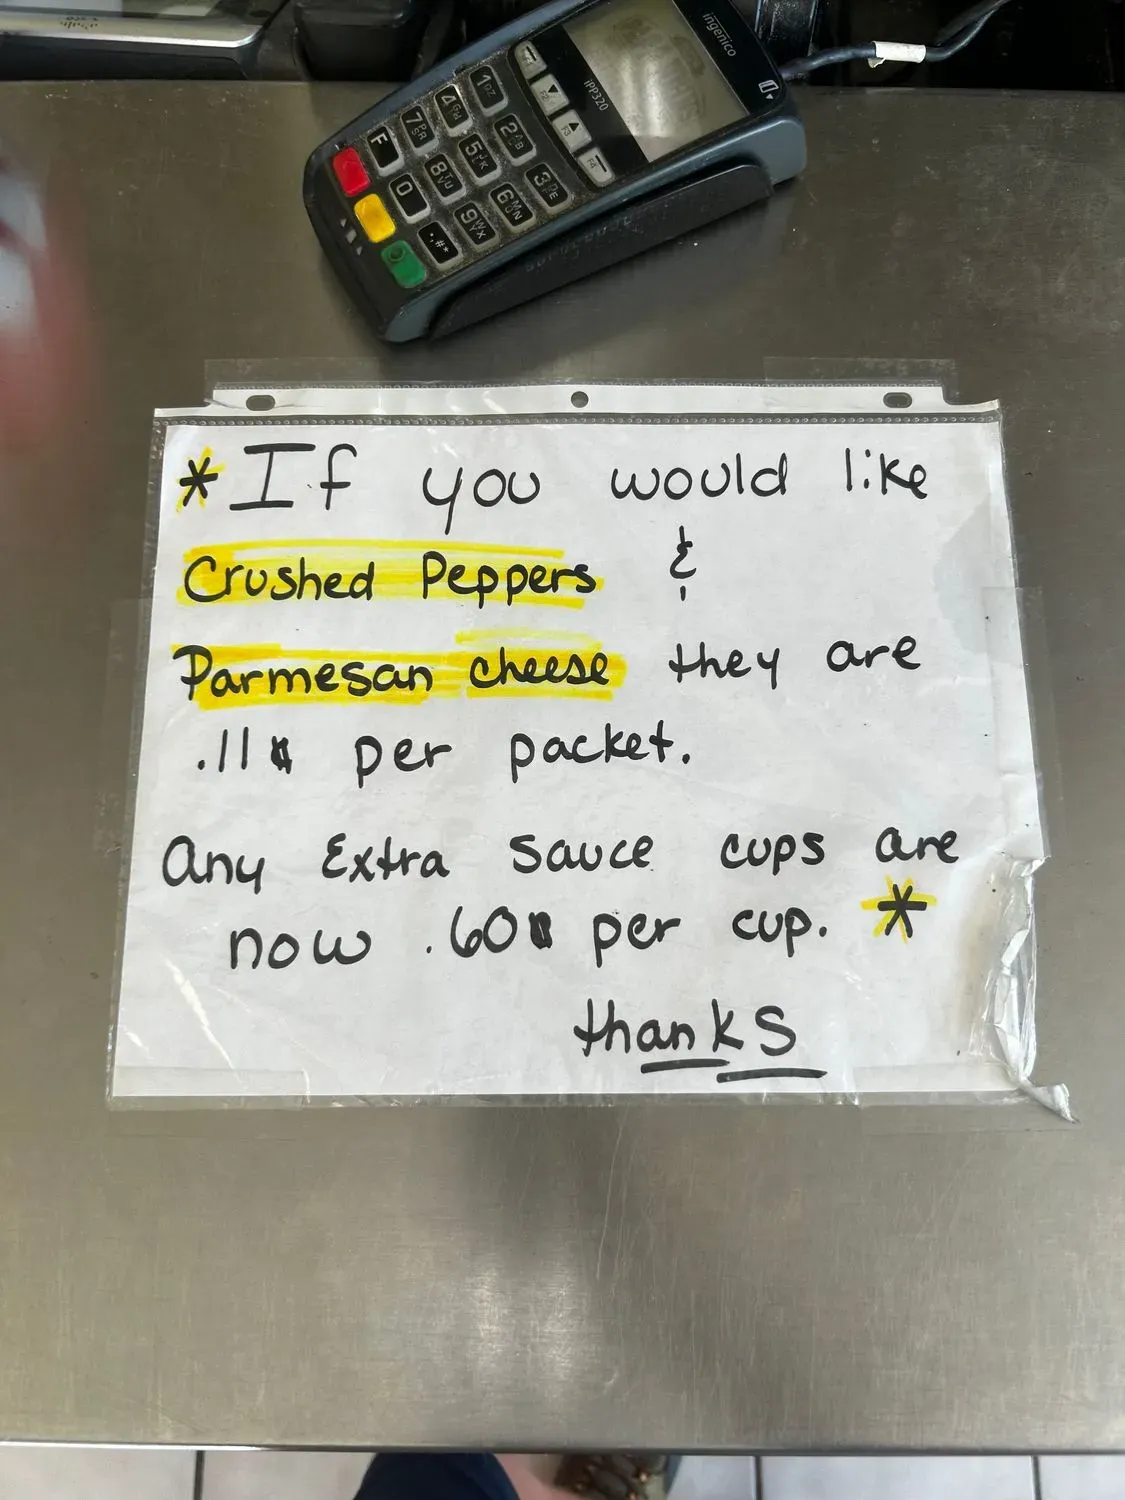 ingenico
iPP320
F2
F3
F4
1 QZ
2 AB
3 DE
4 GH
5 JK
6 MN
7 PR
8 TU
9 WX
F
0
.,#*
* If you would like
Crushed Peppers &
Parmesan cheese they are
.11 per packet.
any Extra sauce cups are
now .60 per cup. *
thanks